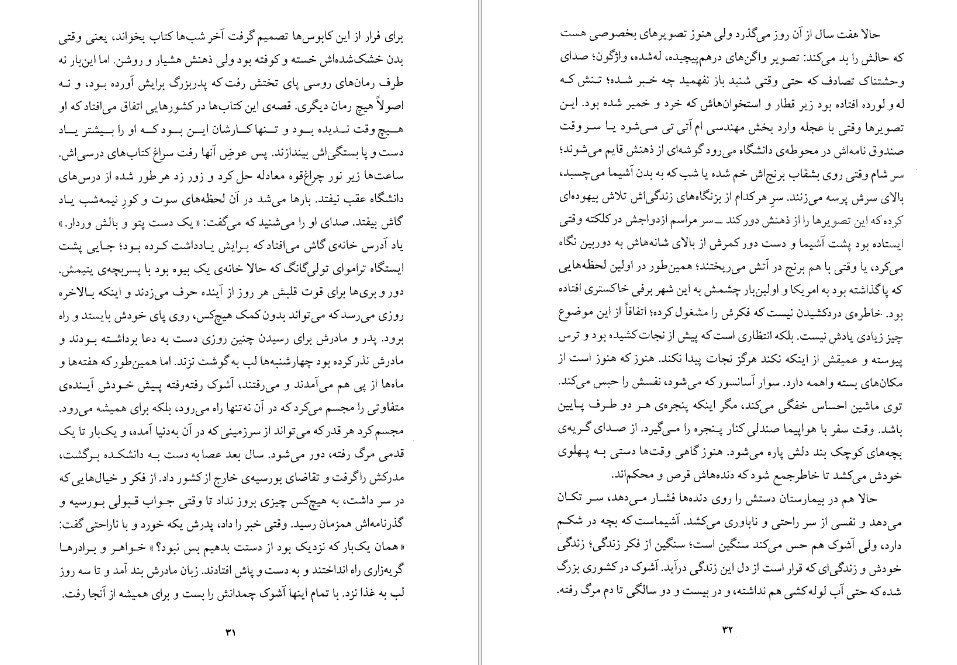 برای فرار از این کابوس‌ها تصمیم گرفت آخر شب‌ها کتاب بخواند، یعنی وقتی
بدن خشک‌شده‌اش خسته و کوفته بود ولی ذهنش هشیار و روشن. اما این‌بار نه
طرف رمان‌های روسی پای تختش رفت که پدربزرگ برایش آورده بود، و نه
اصولاً هیچ رمان دیگری. قصه‌ی این کتاب‌ها در کشورهایی اتفاق می‌افتاد که او
هیچ وقت ندیده بود و تنها کارشان این بود که او را بیشتر یاد
دست و پا بستگی‌اش بیندازند. پس عوضِ آنها رفت سراغ کتاب‌های درسی‌اش.
ساعت‌ها زیر نور چراغ‌قوه معادله حل کرد و زور زد هر طور شده از درس‌های
دانشگاه عقب نیفتد. بارها می‌شد در آن لحظه‌های سوت و کورِ نیمه‌شب یاد
گاش بیفتد. صدای او را می‌شنید که می‌گفت: «یک دست پتو و بالش وردار.»
یاد آدرس خانه‌ی گاش می‌افتاد که برایش یادداشت کرده بود؛ جایی پشت
ایستگاه تراموای تولی‌گانگ که حالا خانه‌ی یک بیوه بود با پسربچه‌ی یتیمش.
دور و بری‌ها برای قوت قلبش هر روز از آینده حرف می‌زدند و اینکه بالاخره
روزی می‌رسد که می‌تواند بدون کمک هیچ‌کس، روی پای خودش بایستد و راه
برود. پدر و مادرش برای رسیدن چنین روزی دست به دعا برداشته بودند و
مادرش نذر کرده بود چهارشنبه‌ها لب به گوشت نزند. اما همین‌طور که هفته‌ها و
ماه‌ها از پی هم می‌آمدند و می‌رفتند، آشوک رفته‌رفته پیش خودش آینده‌ی
متفاوتی را مجسم می‌کرد که در آن نه‌تنها راه می‌رود، بلکه برای همیشه می‌رود.
مجسم کرد هر قدر که می‌تواند از سرزمینی که در آن به‌دنیا آمده، و یک‌بار تا یک
قدمی مرگ رفته، دور می‌شود. سال بعد عصا به دست به دانشکده برگشت،
مدرکش را گرفت و تقاضای بورسیه‌ی خارج از کشور داد. از فکر و خیال‌هایی که
در سر داشت، به هیچ‌کس چیزی بروز نداد تا وقتی جواب قبولی بورسیه و
گذرنامه‌اش همزمان رسید. وقتی خبر را داد، پدرش یکه خورد و با ناراحتی گفت:
«همان یک‌بار که نزدیک بود از دستت بدهیم بس نبود؟» خواهر و برادرها
گریه‌زاری راه انداختند و به دست و پاش افتادند. زبان مادرش بند آمد و تا سه روز
لب به غذا نزد. با تمام اینها آشوک چمدانش را بست و برای همیشه از آنجا رفت.
۳۱
حالا هفت سال از آن روز می‌گذرد ولی هنوز تصویرهای بخصوصی هست
که حالش را بد می‌کند: تصویر واگن‌های درهم‌پیچیده، له‌شده، واژگون؛ صدای
وحشتناک تصادف که حتی وقتی شنید باز نفهمید چه خبر شده؛ تنش که
له و لورده افتاده بود زیر قطار و استخوان‌هاش که خرد و خمیر شده بود. این
تصویرها وقتی با عجله وارد بخش مهندسی ام آی تی می‌شود یا سر وقت
صندوق نامه‌اش در محوطه‌ی دانشگاه می‌رود گوشه‌ای از ذهنش قایم می‌شوند؛
سر شام وقتی روی بشقاب برنج‌اش خم شده یا شب که به بدن آشیما می‌چسبد،
بالای سرش پرسه می‌زنند. سرِ هر کدام از بزنگاه‌های زندگی‌اش تلاش بیهوده‌ای
کرده که این تصویرها را از ذهنش دور کند ــ سر مراسم ازدواجش در کلکته وقتی
ایستاده بود پشت آشیما و دست دور کمرش از بالای شانه‌هاش به دوربین نگاه
می‌کرد، یا وقتی با هم برنج در آتش می‌ریختند؛ همین‌طور در اولین لحظه‌هایی
که پا گذاشته بود به امریکا و اولین‌بار چشمش به این شهر برفی خاکستری افتاده
بود. خاطره‌ی درد کشیدن نیست که فکرش را مشغول کرده؛ اتفاقاً از این موضوع
چیز زیادی یادش نیست. بلکه انتظاری است که پیش از نجات کشیده بود و ترس
پیوسته و عمیقش از اینکه نکند هرگز نجات پیدا نکند. هنوز که هنوز است از
مکان‌های بسته واهمه دارد. سوار آسانسور که می‌شود، نفسش را حبس می‌کند.
توی ماشین احساس خفگی می‌کند، مگر اینکه پنجره‌ی هر دو طرف پایین
باشد. وقت سفر با هواپیما صندلی کنار پنجره را می‌گیرد. از صدای گریه‌ی
بچه‌های کوچک بند دلش پاره می‌شود. هنوز گاهی وقت‌ها دستی به پهلوی
خودش می‌کشد تا خاطرجمع شود که دنده‌هاش قرص و محکم‌اند.
حالا هم در بیمارستان دستش را روی دنده‌ها فشار می‌دهد، سر تکان
می‌دهد و نفسی از سر راحتی و ناباوری می‌کشد. آشیماست که بچه در شکم
دارد، ولی آشوک هم حس می‌کند سنگین است؛ سنگین از فکر زندگی؛ زندگی
خودش و زندگی‌ای که قرار است از دل این زندگی درآید. آشوک در کشوری بزرگ
شده که حتی آب لوله‌کشی هم نداشته، و در بیست و دو سالگی تا دم مرگ رفته.
۳۲